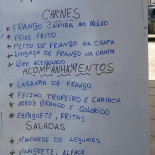 CARNES
* FRANGO CAIPIRA AO MOLHO
* PEIXE FRITO
* PEITO DE FRANGO NA CHAPA
* LINGUIÇA DE FRANGO NA CHAPA
* BIFE ACEBOLADO
ACOMPANHAMENTOS
* LASANHA DE FRANGO
* FEIJÃO TROPEIRO E CARIOCA
* ARROZ BRANCO E COLORIDO
* ESPAGUETE, FRITAS
SALADAS
* VINAGRETE DE LEGUMES
* VINAGRETE, ALFACE